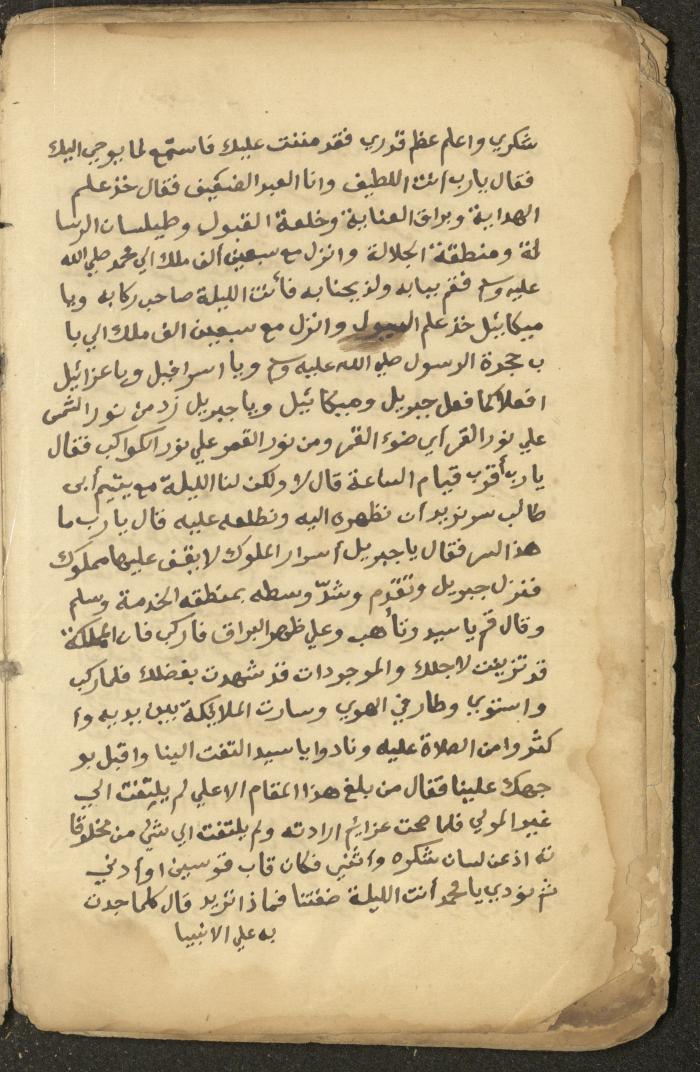 شكري واعلم عظم قدري فقد مننت عليك فاستمع لما يوحي اليك
فقال يارب انت اللطيف وانا العبد الضعيف فقال خذ علم
الهداية وبراق العناية وخلعة القبول وطيلسان الرسا
لة ومنطقة الجلالة وانزل مع سبعين ألف ملك الي محمد صلي الله
عليه وسلم فقم ببابه ولذ بجنابه فأنت الليلة صاحب ركابه ويا
ميكائيل خذ علم القبول وانزل مع سبعين الف ملك الي با
ب حجرة الرسول صلي الله عليه وسلم ويا اسرافيل ويا عزرائيل
افعلا كما فعل جبريل وميكائيل ويا جبريل زد من نور الشمس
علي نور القمر أي ضوء القمر ومن نور القمر علي نور الكواكب فقال
يا رب أقرب قيام الساعة قال لا ولكن لنا الليلة مع يتيم أبي
طالب سر نريد أن نظهره اليه ونطلعه عليه قال يا رب ما
هذا السر فقال يا جبريل أسرار الملوك لا يقف عليها مملوك
فنزل جبريل وتقدم وشدّ وسطه بمنطقه الخدمة وسلم
وقال قم يا سيد وتأهب وعلي ظهر البراق فاركب فان المملكة
قد تزينت لاجلك والموجودات قد شهدت بفضلك فلما ركب
واستوي وطار في الهوي وسارت الملايكة بين يديه وأ
كثروا من الصلاة عليه ونادوا يا سيد التفت الينا واقبل بو
جهك علينا فقال من بلغ هذا المقام الاعلي لم يلتفت الي
غير المولي فلما صحت عزايم ارادته ولم يلتفت الي شيئ من مخلوقا
ته اذعن لسان شكره وأثني فكان قاب قوسين او أدني
ثم نودي يا محمد أنت الليلة ضيفنا فماذا تريد قال كلما جدت
به علي الانبيا